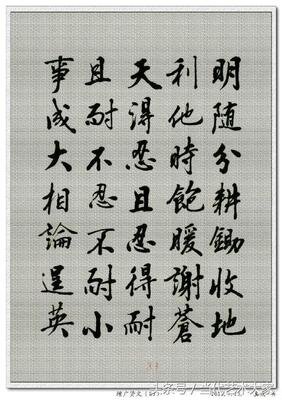 明随分耕鋤收地
利他時飽暖謝蒼
天得忍且忍得耐
且耐不忍不耐小
事成大相論逞英
33
增广贤文
头条号 / 当代艺术大家